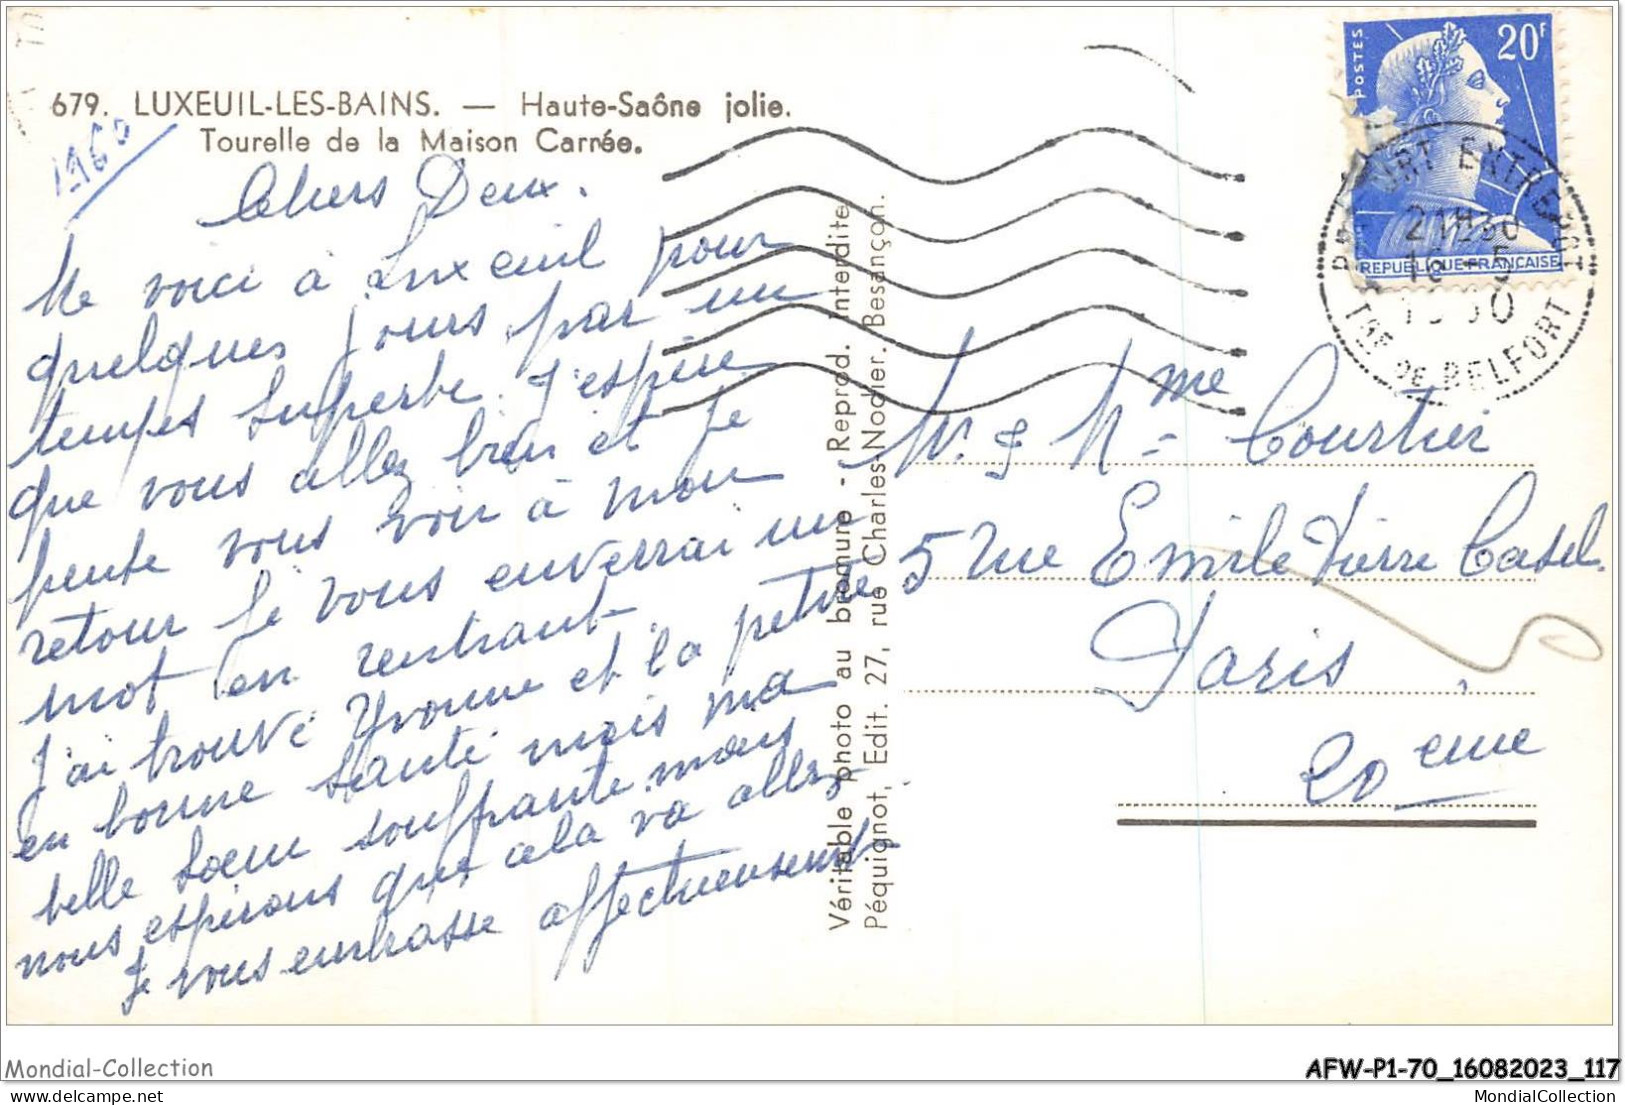 679. LUXEUIL-LES-BAINS. — Haute-Saône jolie.
Tourelle de la Maison Carrée.
1960
Chers Deux.
Me voici à Luxeuil pour
quelques jours par un
temps superbe. J'espère
que vous allez bien et je
pense vous voir à mon
retour je vous enverrai un
mot en rentrant.
J'ai trouvé Yvonne et la petite
en bonne santé mais ma
belle soeur souffrante. mais
nous espérons que cela va aller
Je vous embrasse affectueusement
Véritable photo au bromure - Reprod. Interdite
Péquignot, Edit. 27, rue Charles-Nodier. Besançon.
POSTES
20F
REPUBLIQUE FRANÇAISE
ENTREPOT
21H30
18 - 5
TRE DE BELFORT
Mr & Mme = Courtier
5 rue Emile Pierre Casel.
Paris.
20 eme
Mondial-Collection
AFW-P1-70_16082023_117
MondialCollection